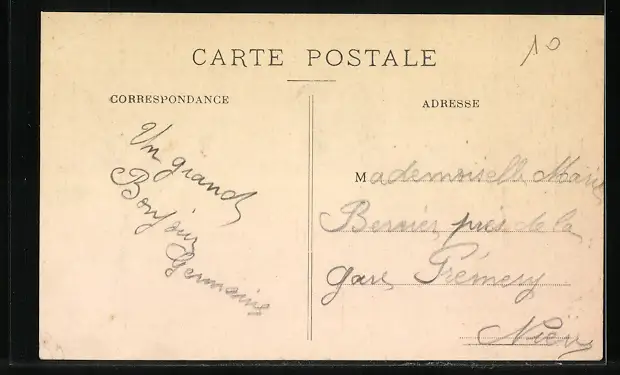 CARTE POSTALE
10
CORRESPONDANCE
ADRESSE
Un grand
Bonjour
Germaine
Mademoiselle Marie
Bernier près de la
gare Prémery
Nièv